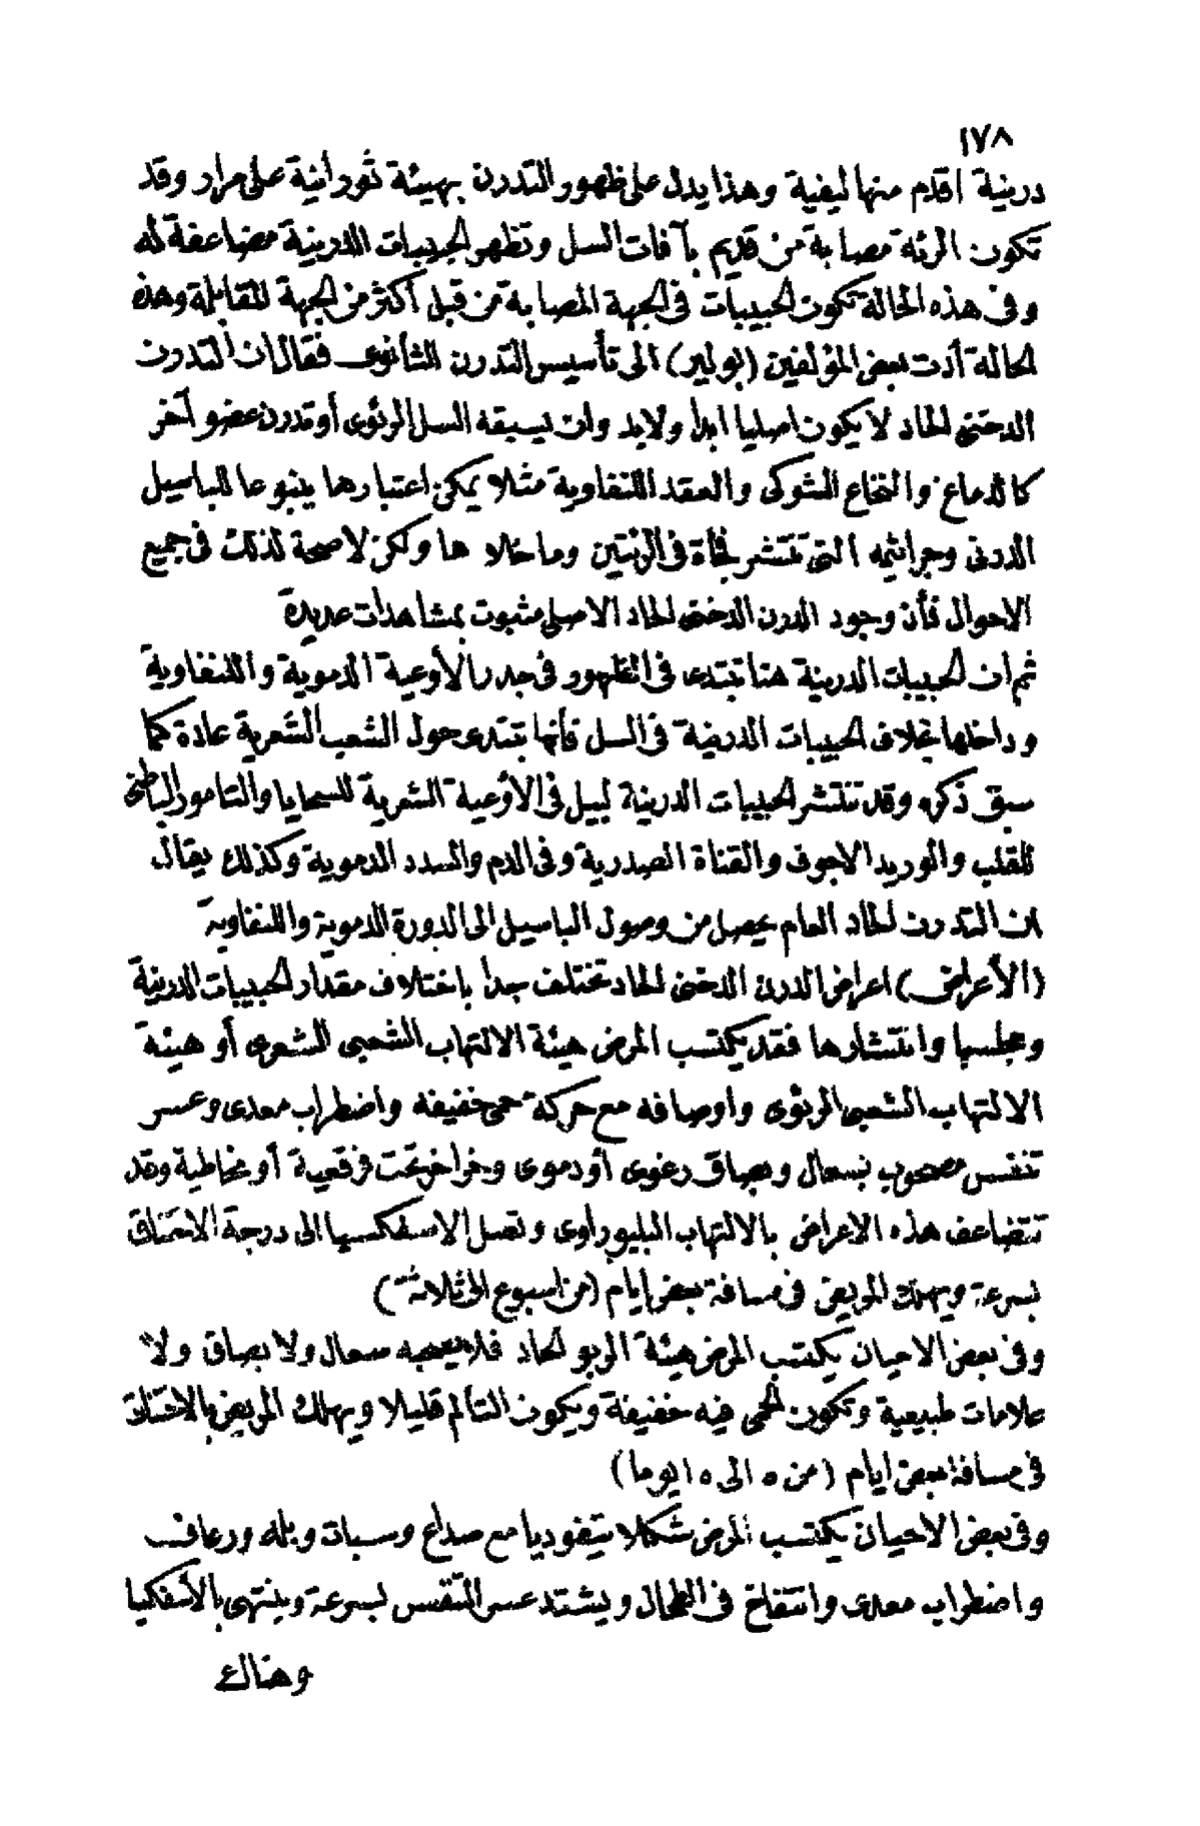 ١٧٨
درنية اقدم منها ليفية وهذا يدل على ظهور التدرن بهيئة ثورانية على مرار وقد
تكون الرئة مصابة من قديم بآفات السل وتظهر الحبيبات الدرنية مضاعفة له
وفى هذه الحالة تكون الحبيبات فى الجهة المصابة من قبل أكثر من الجهة المقابلة وهذه
الحالة أدت بعض المؤلفين (بولير) الى تأسيس التدرن الثانوى فقال ان التدرن
الدخنى الحاد لا يكون اصليا ابدا ولابد وان يسبقه السل الرئوى أو تدرن عضو آخر
كالدماغ والنخاع الشوكى والعقد اللنفاوية مثلا يمكن اعتبارها ينبوعا للباسيل
الدرنى وجراثيمه التى تنتشر فجأة فى الرئتين وما خلا ها ولكن لا صحة لذلك فى جميع
الاحوال فأن وجود الدرن الدخنى الحاد الاصلى مثبوت بمشاهدات عديدة
ثم ان الحبيبات الدرنية هنا تبتدى فى الظهور فى جدر الأوعية الدموية واللنفاوية
وداخلها بخلاف الحبيبات الدرنية فى السل فأنها تبتدى حول الشعب الشعرية عادة كما
سبق ذكره وقد تنتشر الحبيبات الدرنية لبيل فى الأوعية الشعرية للسحايا والتامور الباطنى
للقلب والوريد الاجوف والقناة الصدرية وفى الدم والسدد الدموية وكذلك يقال
ان التدرن الحاد العام يحصل من وصول الباسيل الى الدورة الدموية واللنفاوية
(الأعراض) اعراض الدرن الدخنى الحاد تختلف جدا باختلاف مقدار الحبيبات الدرنية
ومجلسها وانتشارها فقد يكتسب المرض هيئة الالتهاب الشعبى الشعرى أو هيئة
الالتهاب الشعبى الرئوى واوصافه مع حركة حمى خفيفه واضطراب معدى وعسر
تنفس مصحوب بسعال وبصاق رغوى أو دموى وخراخر تحت فرقعية أو مخاطية وقد
تتضاعف هذه الاعراض بالالتهاب البليوراوى وتصل الاسفكسيا الى درجة الاختناق
بسرعة ويهلك المريض فى مسافة بعض أيام (من اسبوع الى ثلاثة)
وفى بعض الاحيان يكتسب المرض هيئة الربو الحاد فلا يصحبه سعال ولا بصاق ولا
علامات طبيعية وتكون الحمى فيه خفيفة ويكون التألم قليلا ويهلك المريض بالاختناق
فى مسافة بعض ايام (من ٥ الى ١٥ يوما)
وفى بعض الاحيان يكتسب المرض شكلا تيفوديا مع صداع وسبات وبله ورعاف
واضطراب معدى وانتفاخ فى الطحال ويشتد عسر التنفس بسرعة وينتهى بالأسفكيا
وهناك